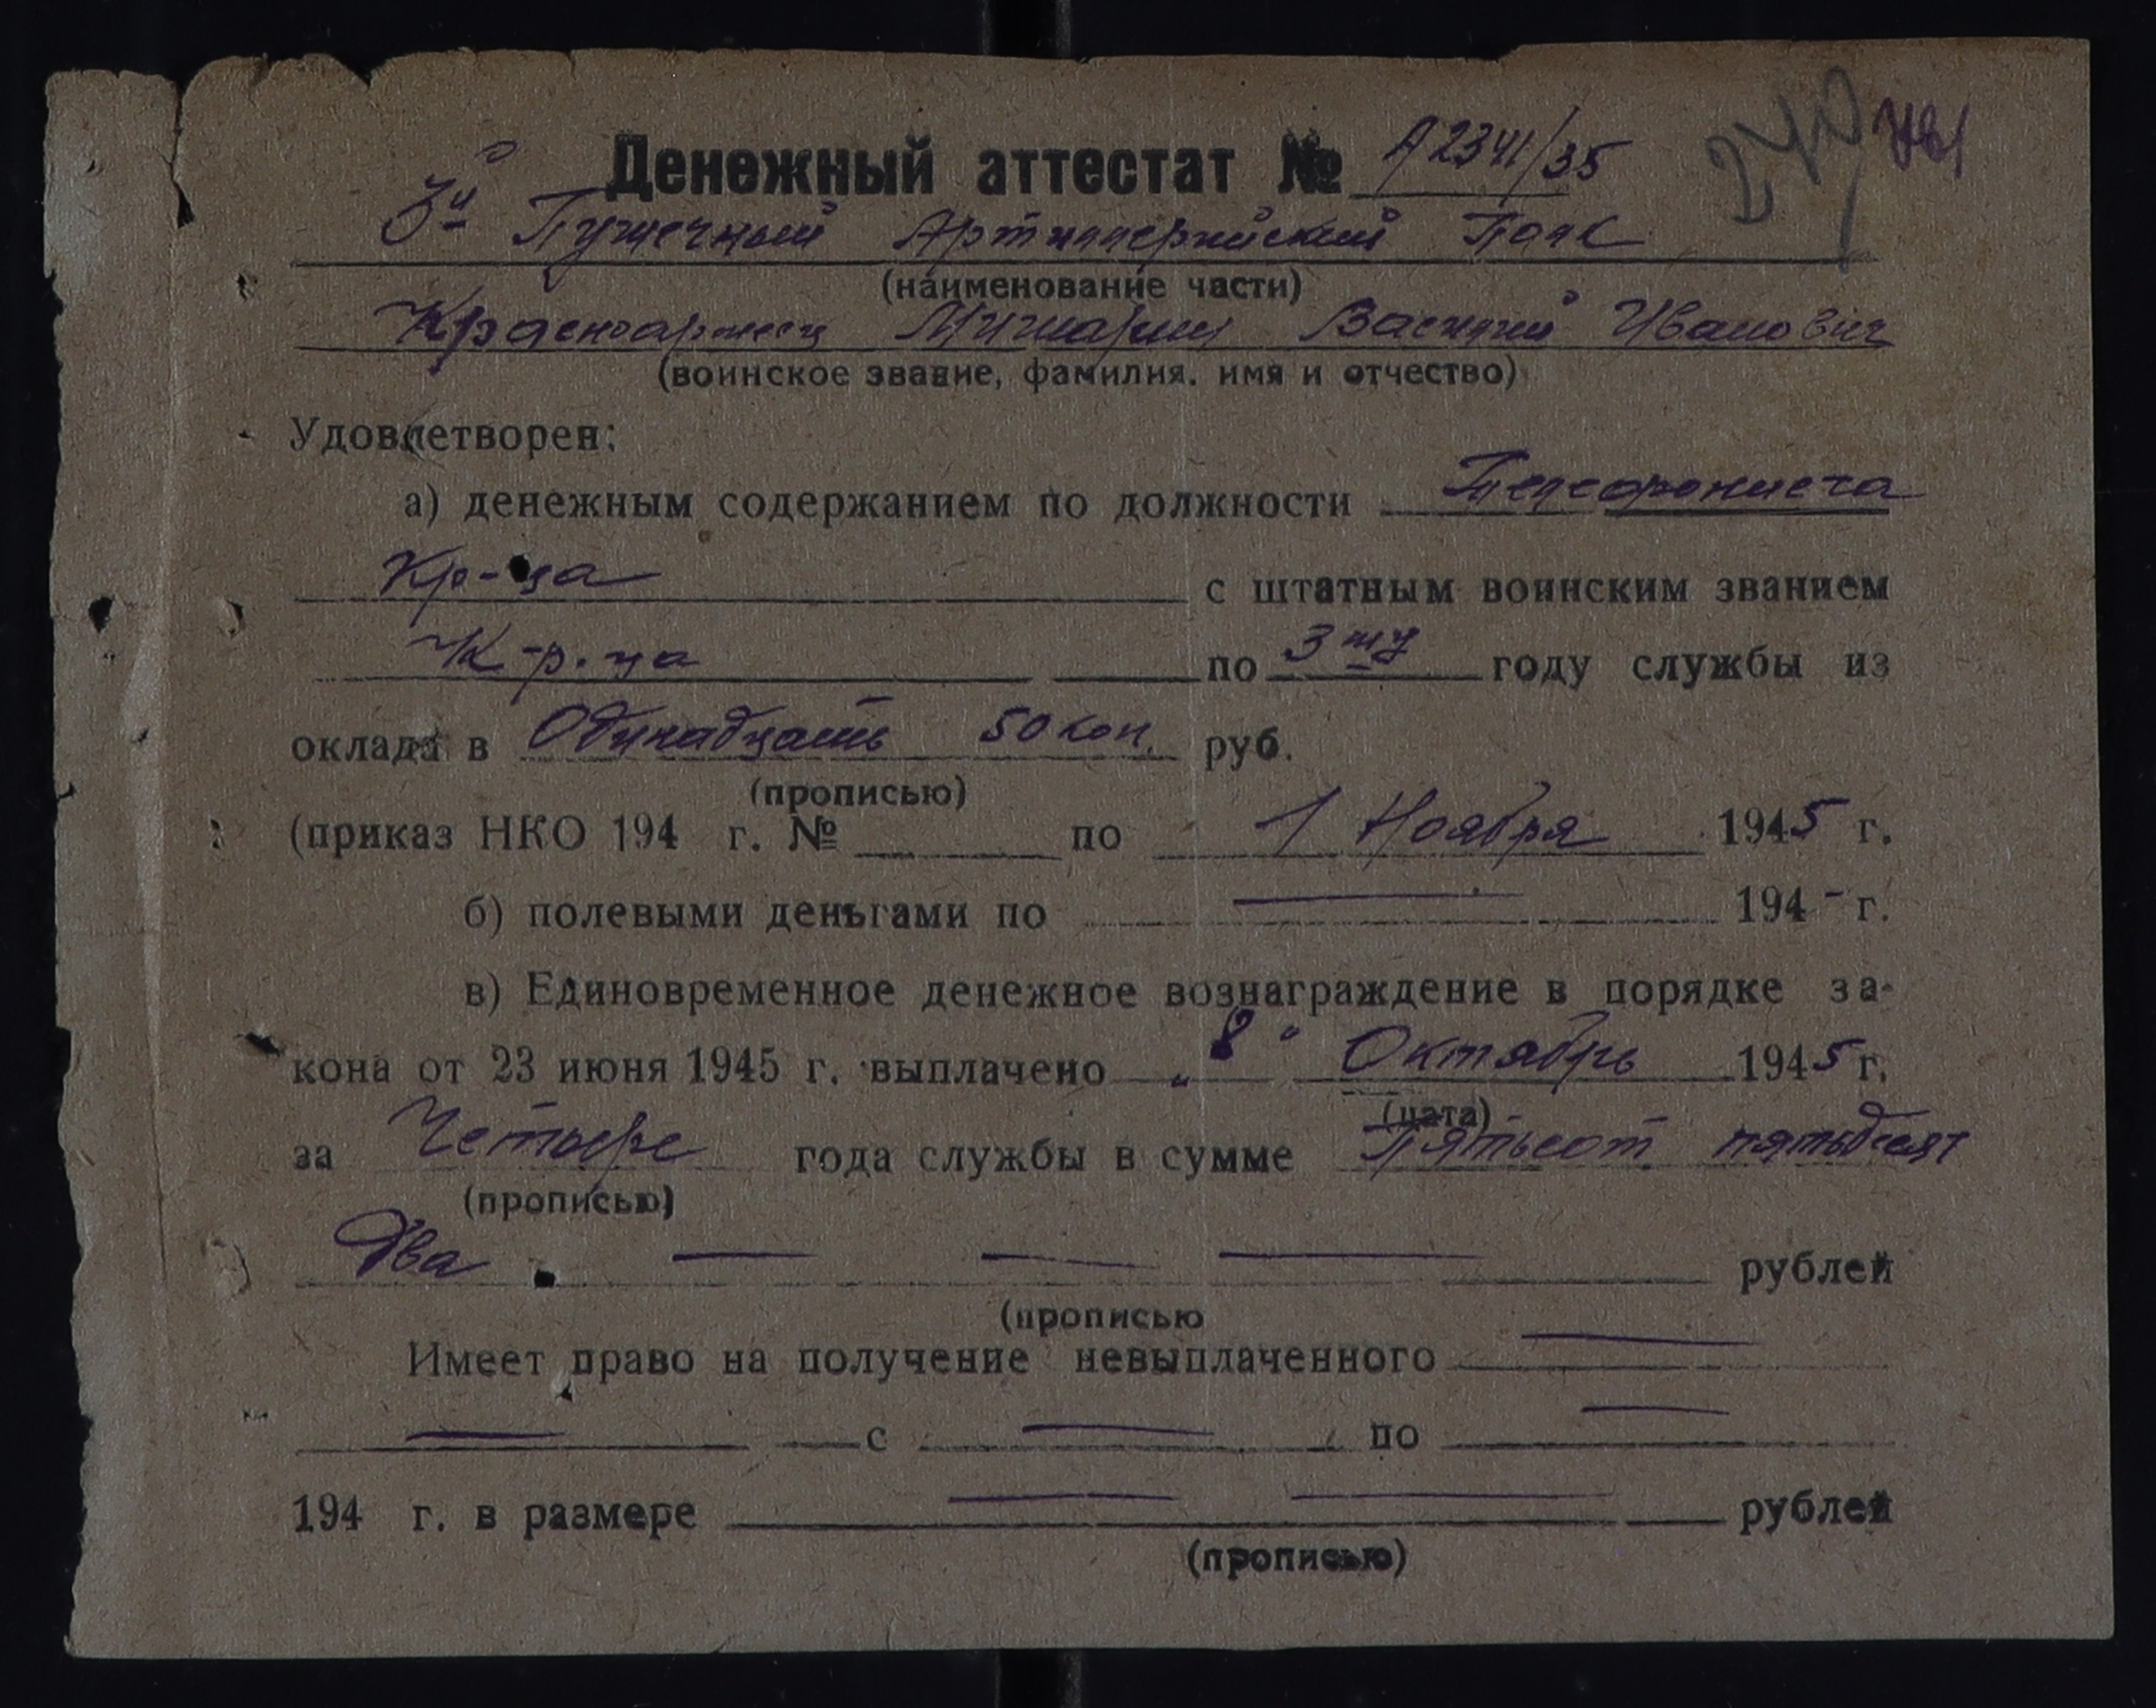 Денежный аттестат № А2341/35
249
3й Пушечный Артиллерийский Полк
(наименование части)
Красноармеец Василий Иванович
(воинское звание, фамилия. имя и отчество)
Удовлетворен:
а) денежным содержанием по должности Телефониста
Кр-ца с штатным воинским званием
К-р.ца по 3му году службы из
оклада в Одинадцать 50 коп. руб.
(прописью)
(приказ НКО 194 г. № по 1 Ноября 1945 г.
б) полевыми деньгами по — 194 - г.
в) Единовременное денежное вознаграждение в порядке за-
кона от 23 июня 1945 г. выплачено „8" Октябрь 1945 г.
(дата)
за Четыре года службы в сумме Пятьсот пятьдесят
(прописью)
Два — — — рублей
(прописью
Имеет право на получение невыплаченного —
— с — по —
194 г. в размере — — рублей
(прописью)